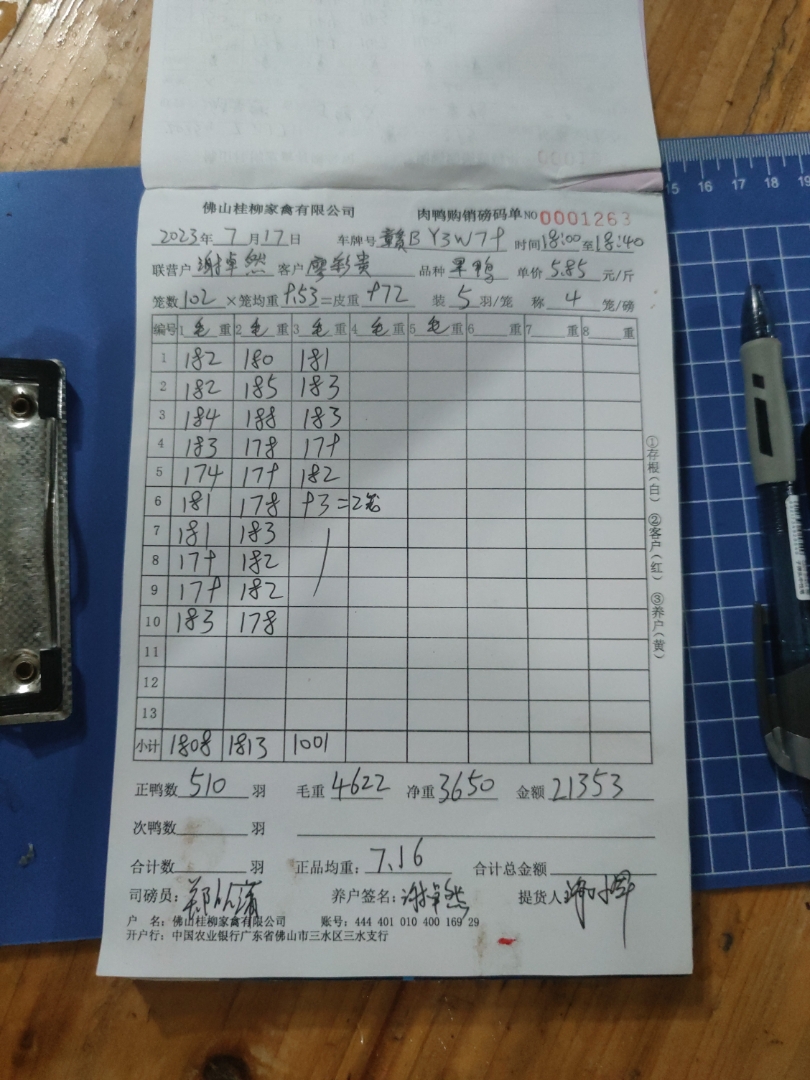 佛山桂柳家禽有限公司 肉鸭购销磅码单 NO 0001263
2023年 7月17日 车牌号 赣B Y3W79 时间18:00至18:40
联营户 谢卓然 客户 廖彩贵 品种 果鸭 单价 5.85 元/斤
笼数 102 ×笼均重 9.53 =皮重 972 装 5 羽/笼 称 4 笼/磅
编号 1 毛 重 2 毛 重 3 毛 重 4 毛 重 5 毛 重 6 重 7 重 8 重
1 182 180 181
2 182 185 183
3 184 188 183
4 183 178 179
5 174 179 182
6 181 178 93=2笼
7 181 183
8 179 182
9 179 182
10 183 178
11
12
13
小计 1808 1813 1001
正鸭数 510 羽 毛重 4622 净重 3650 金额 21353
次鸭数 羽
合计数 羽 正品均重: 7.16 合计总金额
司磅员: 养户签名: 谢卓然 提货人
户 名: 佛山桂柳家禽有限公司 账号: 444 401 010 400 169 29
开户行: 中国农业银行广东省佛山市三水区三水支行
①存根(白) ②客户(红) ③养户(黄)
15 16 17 18 19